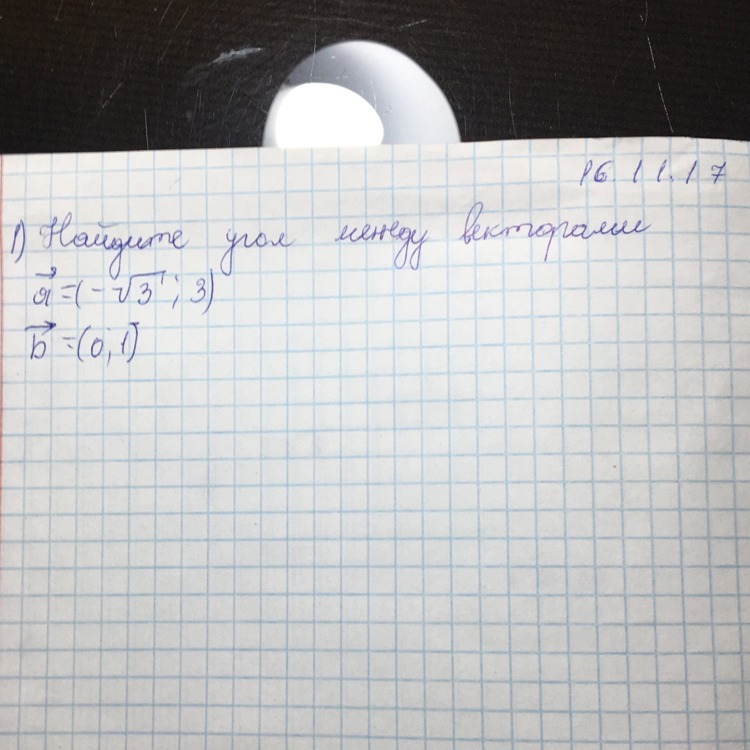 16.11.17
1) Найдите угол между векторами
a⃗ =(-√3; 3)
b⃗ =(0; 1)